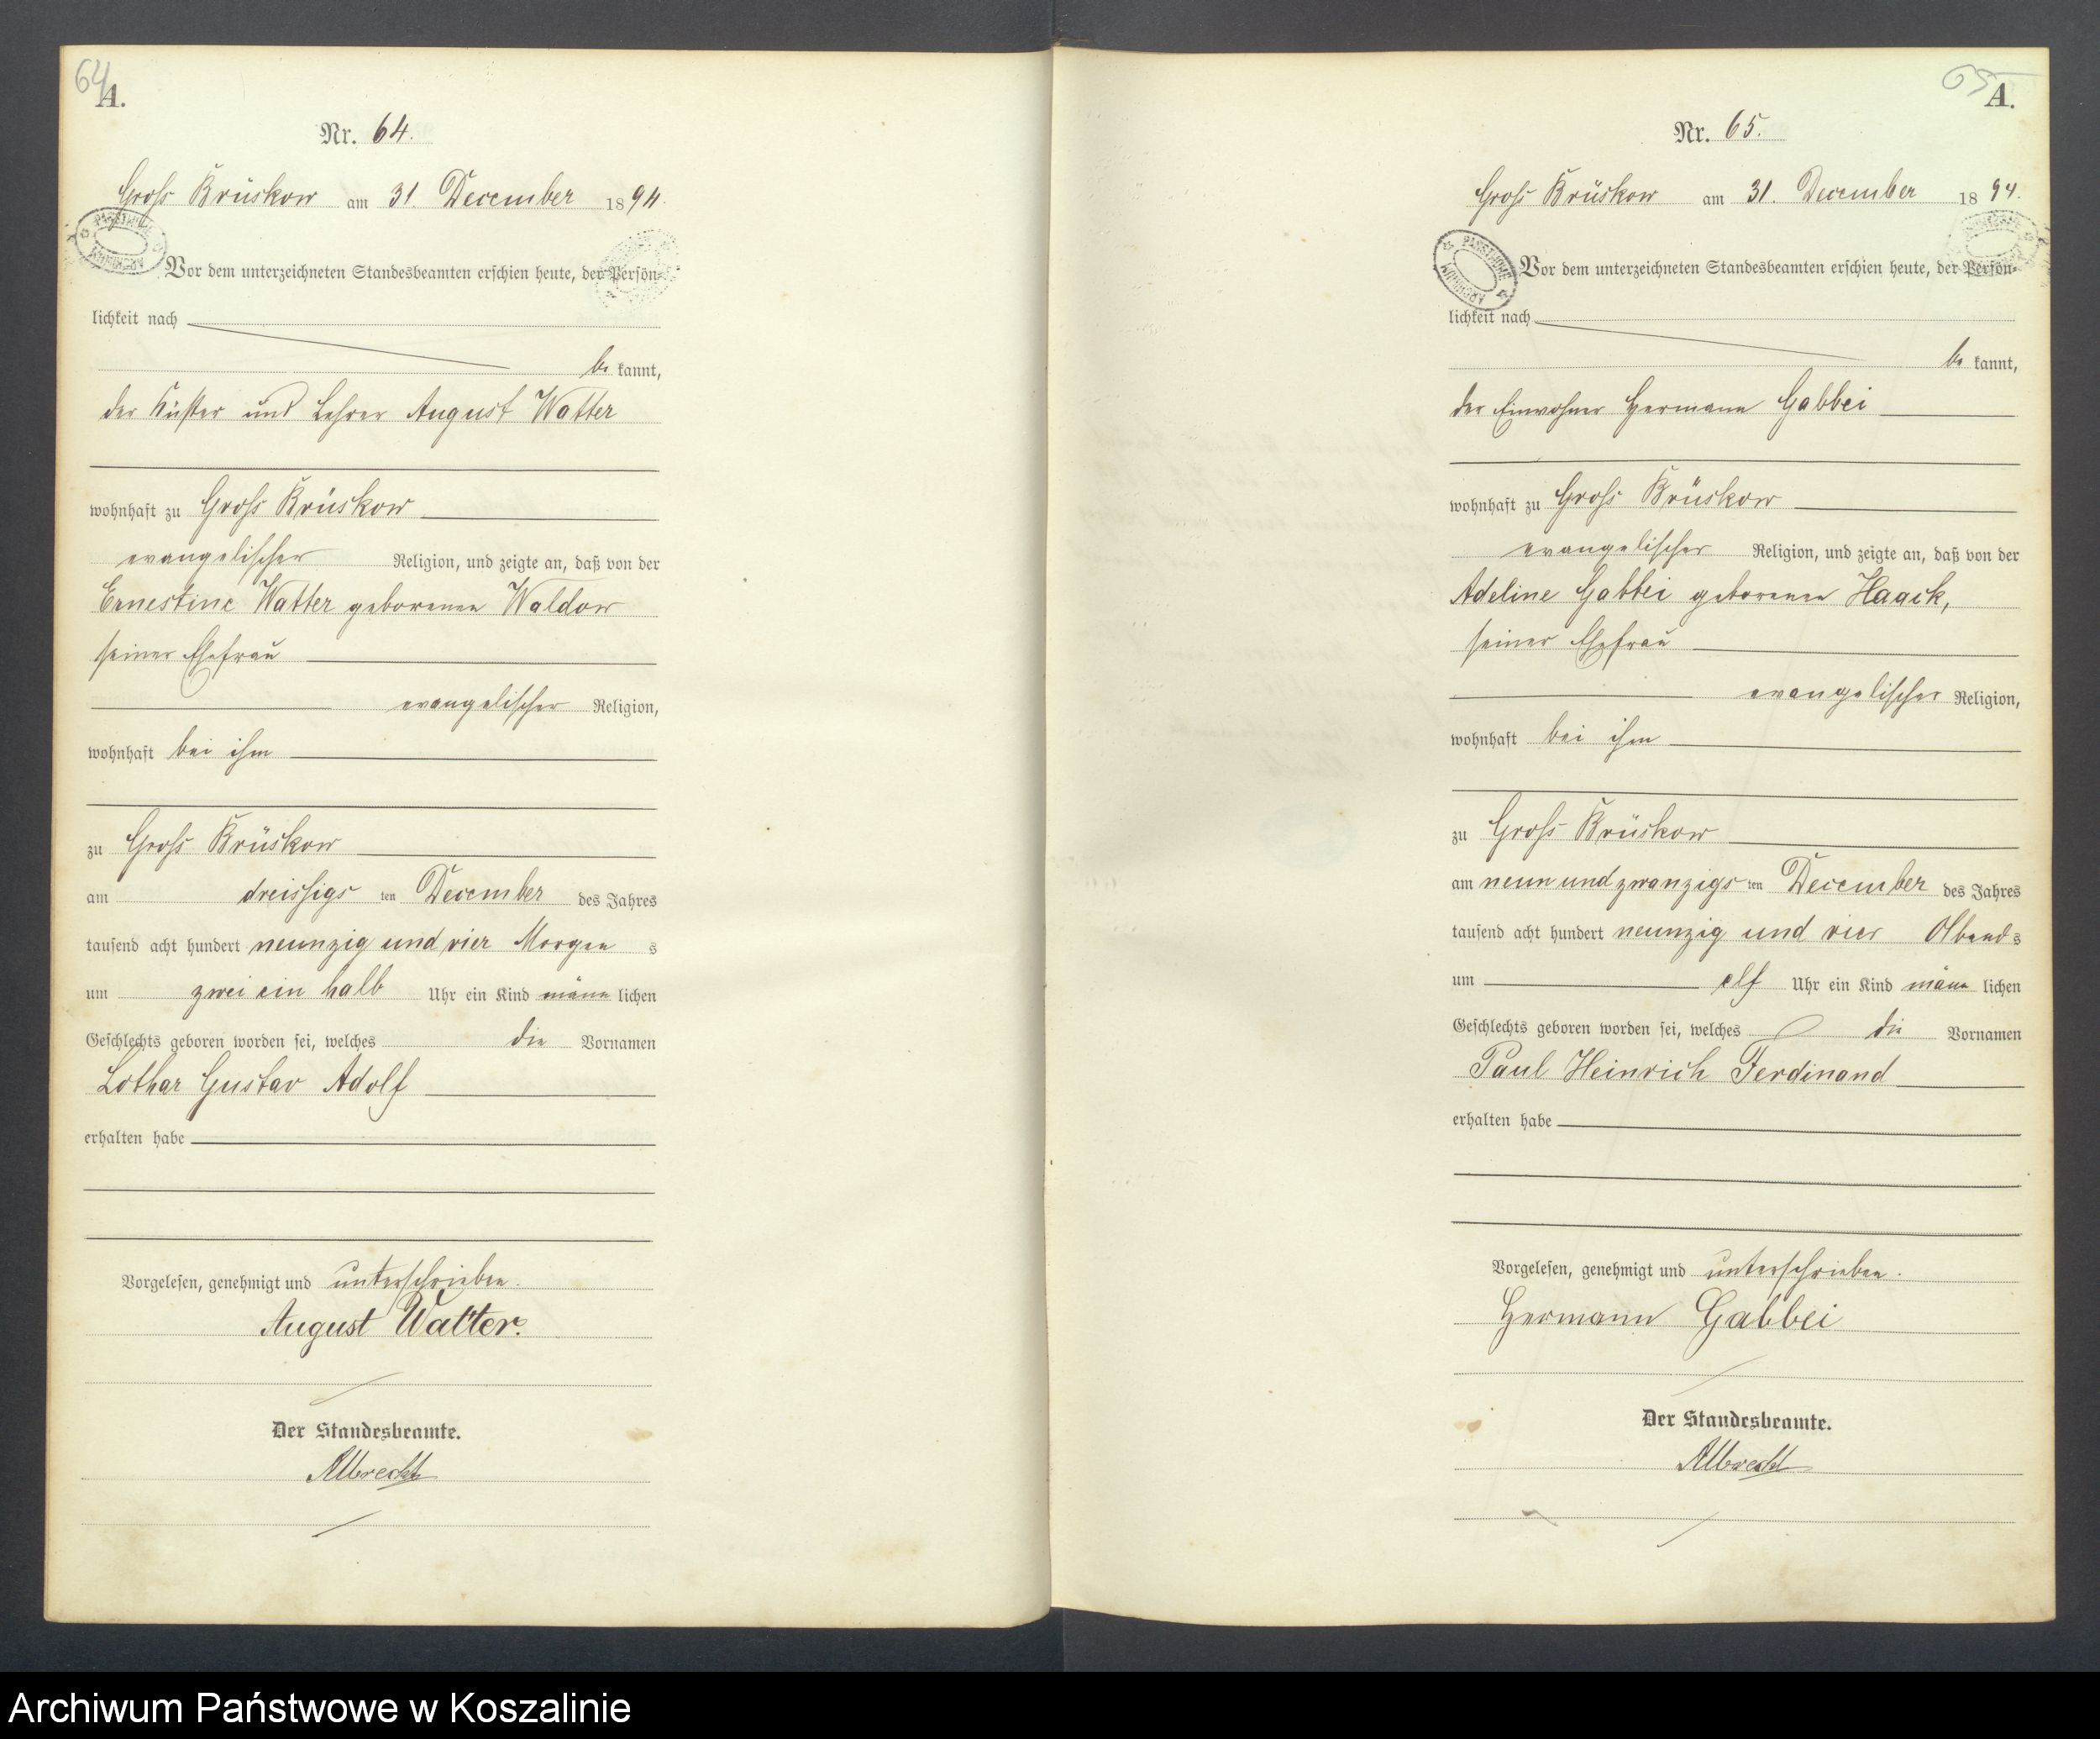 64
A.
Nr. 64.
Gross Brüskow am 31. December 1894.
Vor dem unterzeichneten Standesbeamten erschien heute, der Persön-
lichkeit nach
be kannt,
der Küster und Lehrer August Watter
wohnhaft zu Gross Brüskow
evangelischer Religion, und zeigte an, daß von der
Ernestine Watter geborenen Waldow
seiner Ehefrau
evangelischer Religion,
wohnhaft bei ihm
zu Gross Brüskow
am dreissigs ten December des Jahres
tausend acht hundert neunzig und vier Morgen s
um zwei ein halb Uhr ein Kind männ lichen
Geschlechts geboren worden sei, welches die Vornamen
Lothar Gustav Adolf
erhalten habe
Vorgelesen, genehmigt und unterschrieben.
August Watter.
Der Standesbeamte.
Albrecht
65
A.
Nr. 65.
Gross Brüskow am 31. December 1894.
PAŃSTWOWE ARCHIWUM
Vor dem unterzeichneten Standesbeamten erschien heute, der Persön-
lichkeit nach
be kannt,
der Einwohner Hermann Gabbei
wohnhaft zu Gross Brüskow
evangelischer Religion, und zeigte an, daß von der
Adeline Gabbei geborenen Haack,
seiner Ehefrau
evangelischer Religion,
wohnhaft bei ihm
zu Gross Brüskow
am neun und zwanzigs ten December des Jahres
tausend acht hundert neunzig und vier Abend s
um elf Uhr ein Kind männ lichen
Geschlechts geboren worden sei, welches die Vornamen
Paul Heinrich Ferdinand
erhalten habe
Vorgelesen, genehmigt und unterschrieben.
Hermann Gabbei
Der Standesbeamte.
Albrecht
Archiwum Państwowe w Koszalinie